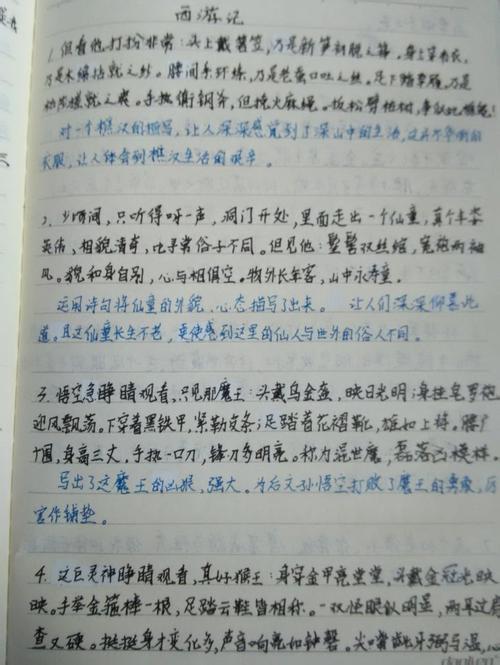 西游记
1. 但看他打扮非常：头上戴箬笠，乃是新笋初脱之箨。身上穿布衣，
乃是木绵拈就之纱。腰间系环绦，乃是老蚕口吐之丝。足下踏草履，乃是
手执衠钢斧，但挽火麻绳。扳松劈枯树，争似此樵能！
对一个樵汉的描写，让人深深感觉到了深山中的生活，
衣服，让人体会到樵汉生活的艰辛。
2. 少顷间，只听得呀一声，洞门开处，里面走出一个仙童，真个丰姿
英伟，相貌清奇，比寻常俗子不同。但见他：髽髻双丝绾，宽袍两袖
风。貌和身自别，心与相俱空。物外长年客，山中永寿童。
运用诗句将仙童的外貌、心态描写了出来。让人们深深仰慕此
道。且这仙童长生不老，更使感到这里的仙人与世外的俗人不同。
3. 悟空急睁睛观看，只见那魔王：头戴乌金盔，映日光明；身挂皂罗袍，
迎风飘荡。下穿着黑铁甲，紧勒皮条；足踏着花褶靴，雄如上将。腰广
十围，身高三丈，手执一口刀，锋刃多明亮。称为混世魔，磊落凶模样。
写出了这魔王的凶狠，强大。为后文孙悟空打败了魔王的
作铺垫。
4. 这巨灵神睁睛观看，真好猴王：身穿金甲亮堂堂，头戴金冠光映
映。手举金箍棒一根，足踏云鞋皆相称。一双怪眼似明星，两耳过肩
查又硬。挺挺身才变化多，声音响亮如钟磬。尖嘴龇牙弼马温，